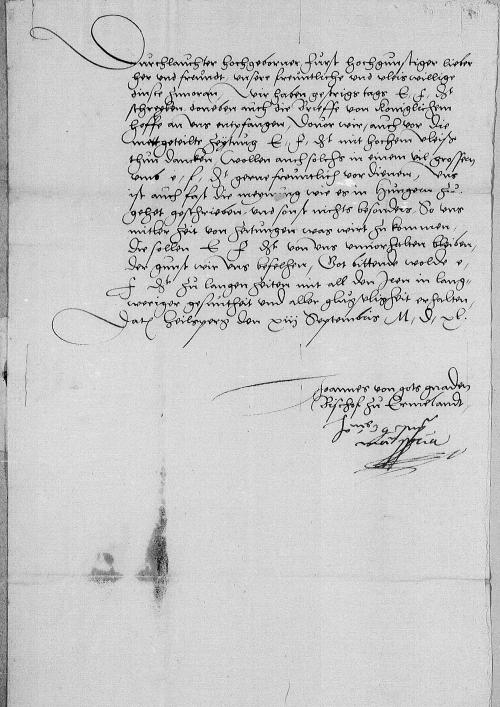 Durchlauchter hochgeborner Furst hochgunstiger lieber
her und freundt, unsere freuntliche und vleiswillige
dinste zuvoran, Wir haben gestrigs tags E. f. dt.
schreiben, doneben auch die brieffe von Koniglichem
hoffe an uns entpfangen, Wir auch vor die
mittgeteilte zeitung E. f. dt. mit hochem vleiss
thun dancken, wollen auch solchs in einem vil grossern
umb e. f. dt. gerne freuntlich vordienen, Uns
ist auch fast die meynung wie es in Hungern zu
gehet geschrieben, und sonst nichts besonders. So uns
mitler zeit von zeitungen was wirt zu kommen,
die sollen E. f. dt. von uns unvorhalten bleiben,
der gunst wir uns befelhen, Got bittende wolde e.
f. dt. zu langen zeiten mit all den Iren in lang-
weriger gesuntheit und aller gluckseligheit erhalten,
Dat. Heilsperg den xiij Septembris M. D. xl.
Joannes von gots gnaden
Bischof zu Ermelandt